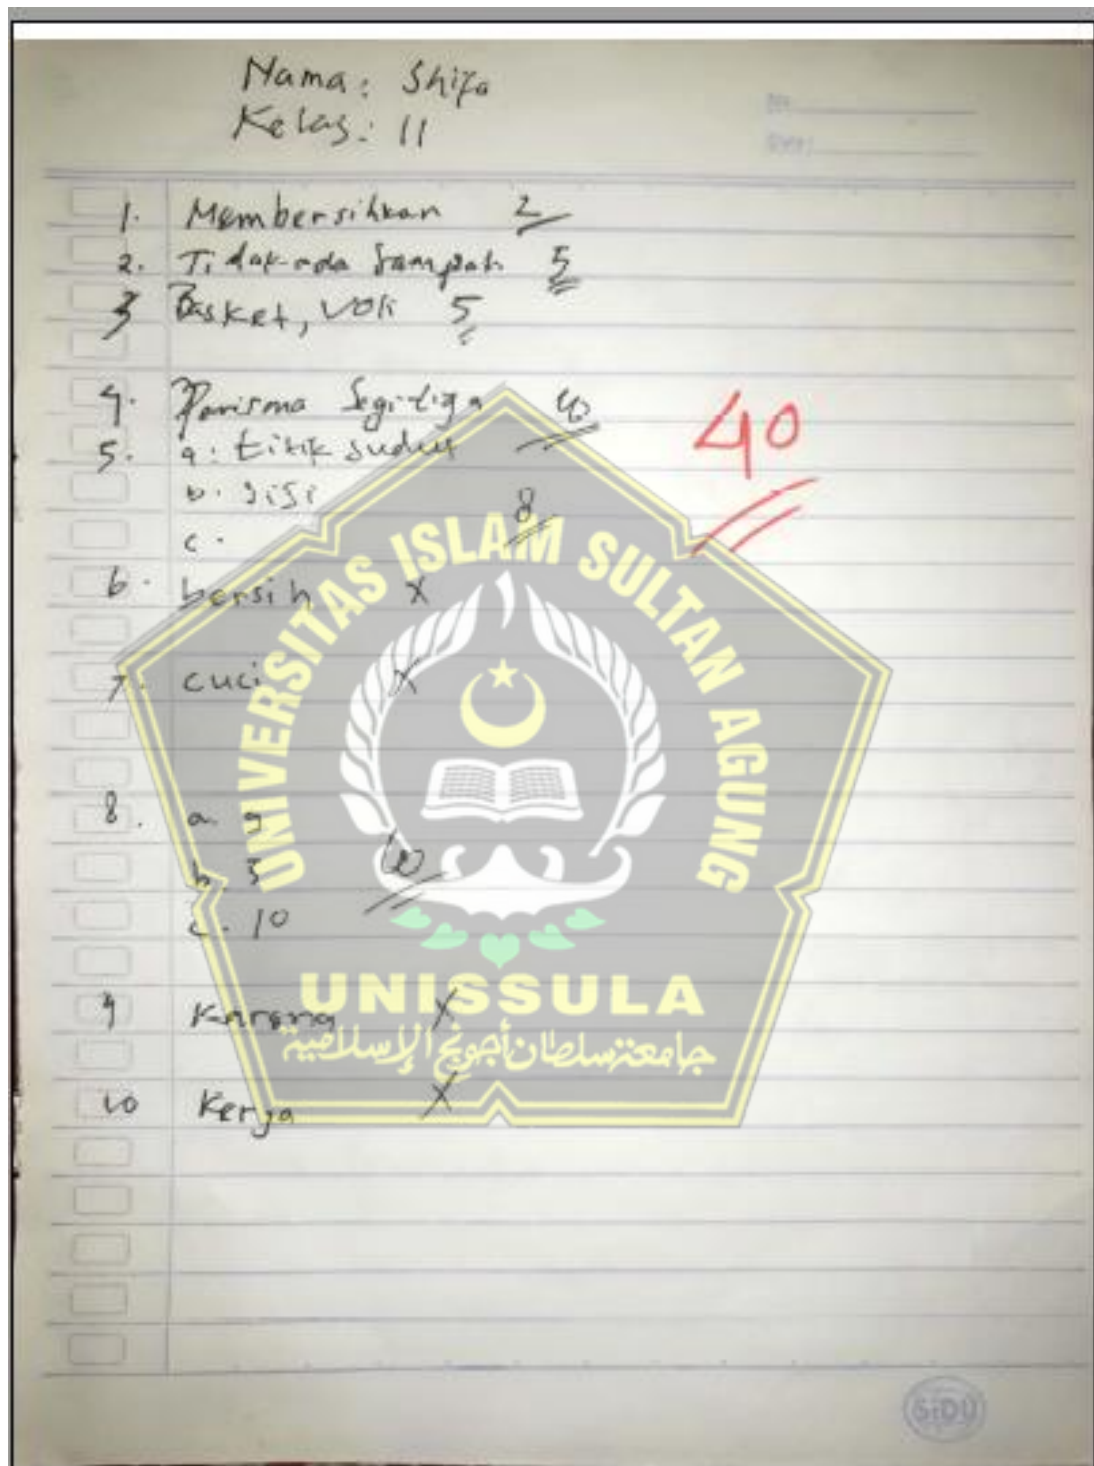 Nama: Shifa
Kelas: II
1. Membersihkan 2
2. Tidak ada sampah 5
3 Basket, Voli 5
4. Parisma Segi-tiga 10
40
5. a. titik sudut
b. sisi
8
c.
6. bersih X
7. cuci X
8. a. 9
b. 5 10
c. 10
9 Karena X
10 Kerja X
UNIVERSITAS ISLAM SULTAN AGUNG
UNISSULA
جامعتسلطان أجونج الإسلامية
SiDU